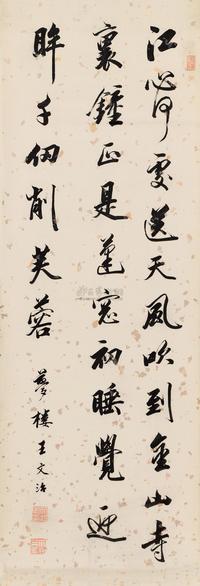 江心何處送天風吹到金山寺
裏鍾正是蓬窓初睡覺迎
眸千仞削芙蓉
夢樓王文治